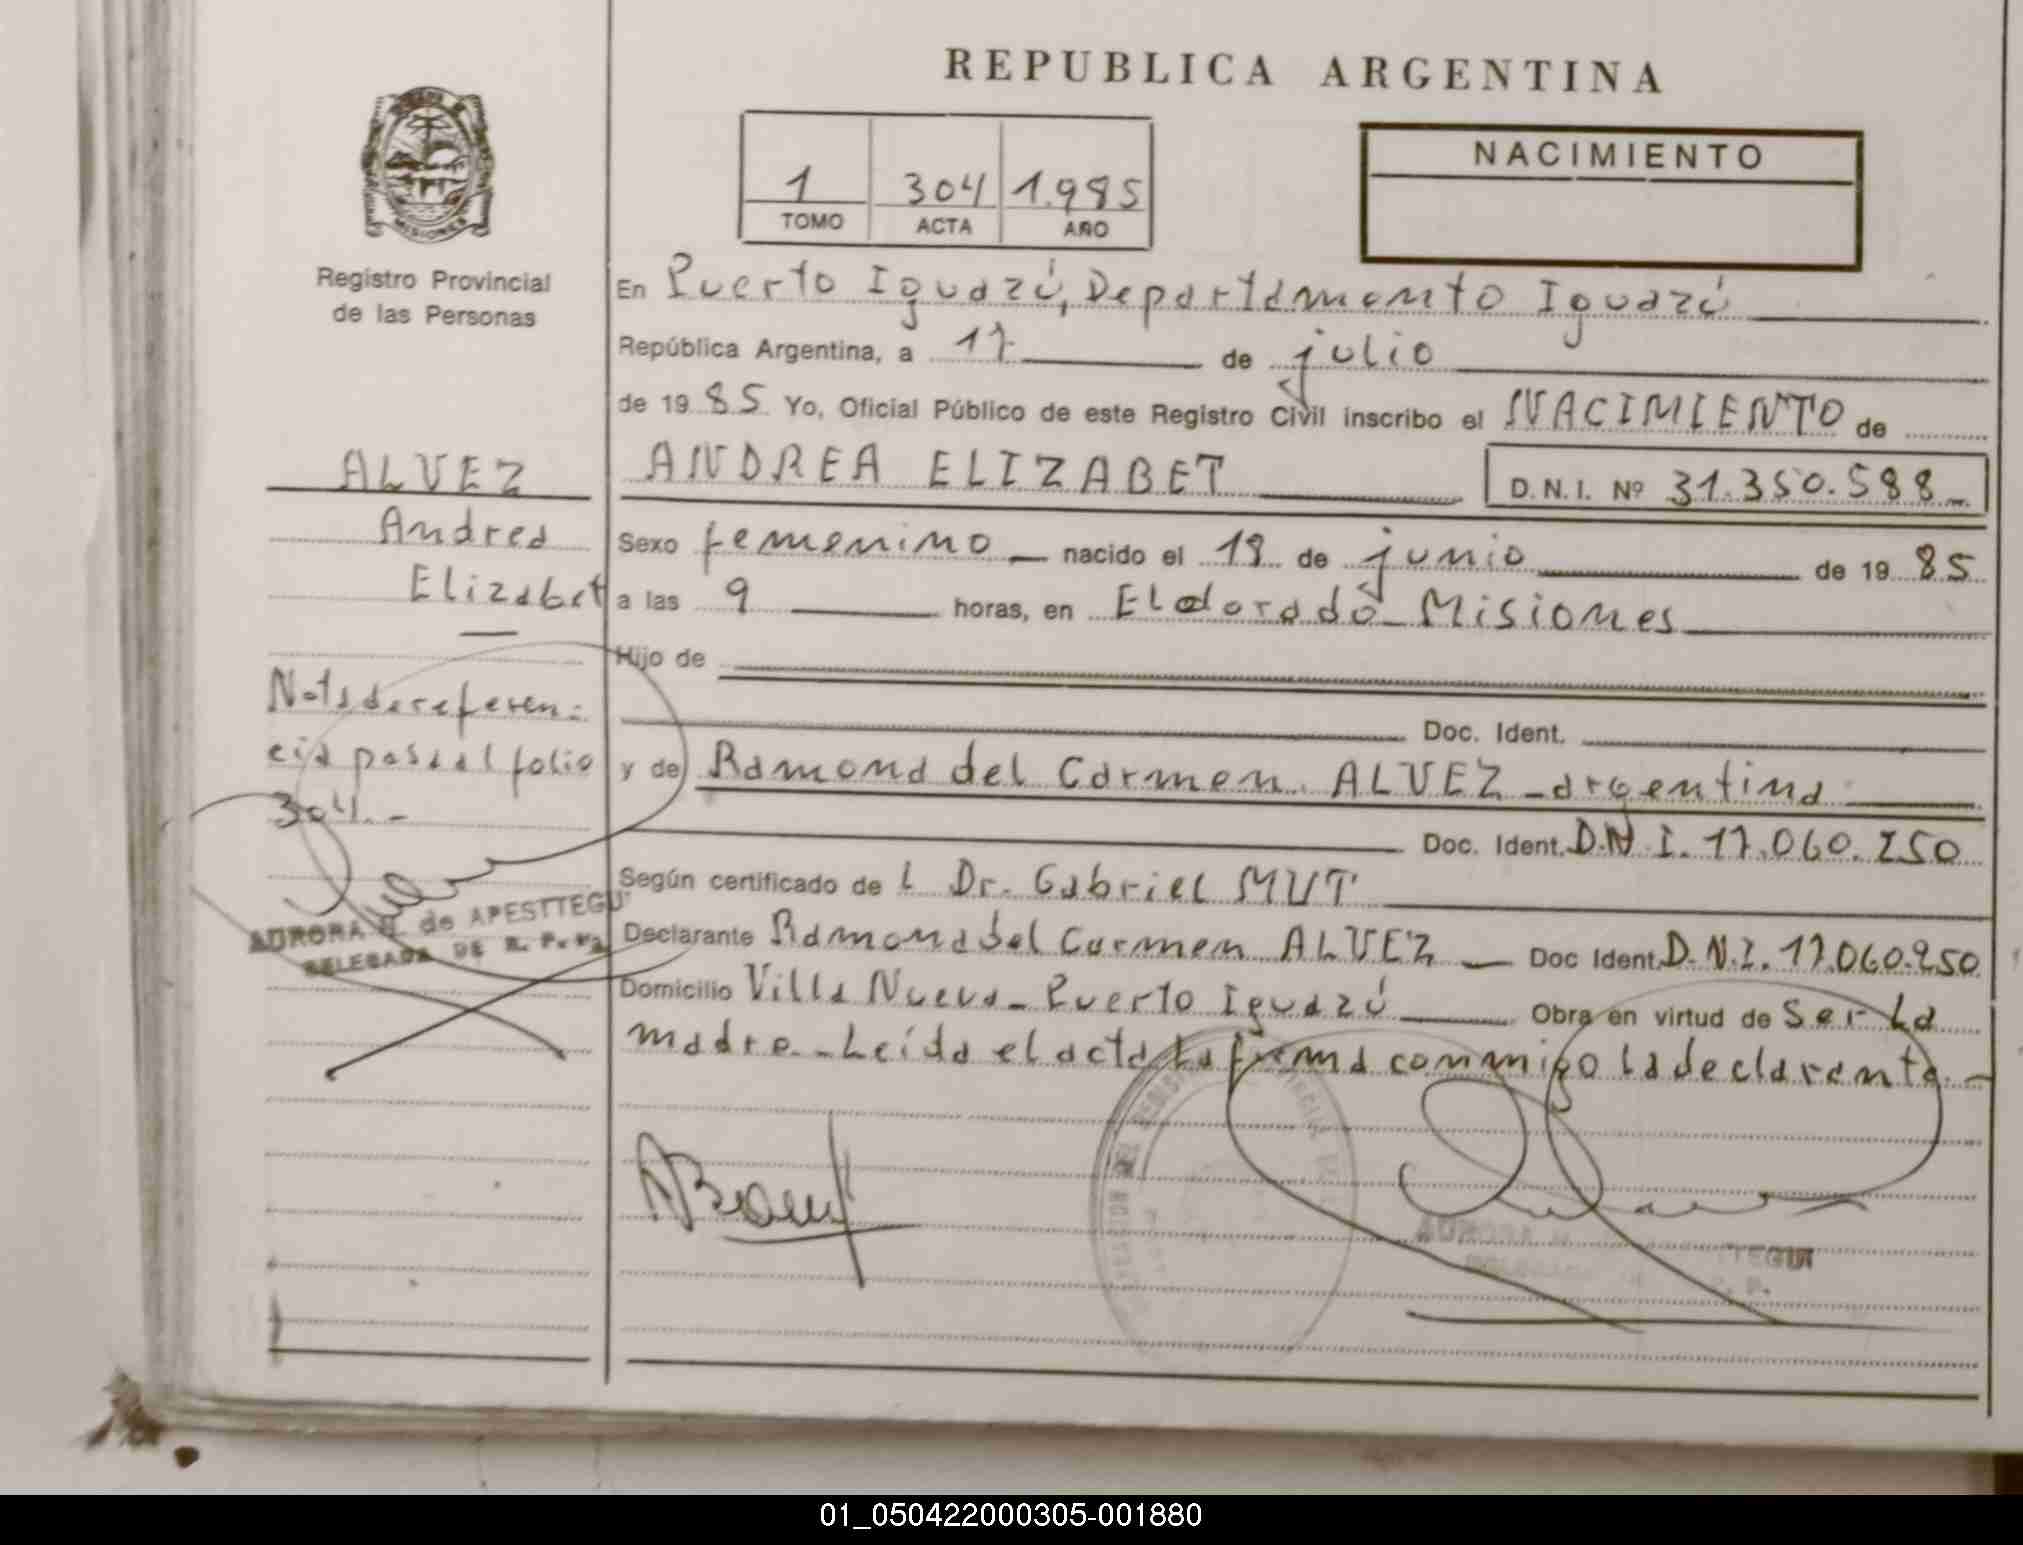 REPUBLICA ARGENTINA
NACIMIENTO
1 304 1.985
TOMO ACTA AÑO
MISIONES
Registro Provincial
de las Personas
En Puerto Iguazú, Departamento Iguazú
República Argentina, a 17 de julio
de 19 85 Yo, Oficial Público de este Registro Civil inscribo el NACIMIENTO de
ANDREA ELIZABET D.N.I. Nº 31.350.588
Sexo femenino nacido el 19 de junio de 19 85
a las 9 horas, en Eldorado Misiones
Hijo de
Doc. Ident.
y de Ramona del Carmen ALVEZ - argentina
Doc. Ident. D.N.I. 17.060.250
Según certificado de l Dr. Gabriel MUT
Declarante Ramona del Carmen ALVEZ Doc Ident. D.N.I. 17.060.250
Domicilio Villa Nueva - Puerto Iguazú Obra en virtud de Ser La
madre. - Leída el acta La firma conmigo la declarante. -
ALVEZ
Andrea
Elizabet
Nota de referen=
cia pasa al folio
304. -
AURORA de APESTTEGUI
DELEGADA DE R. P.
AURORA TEGUI
01_050422000305-001880